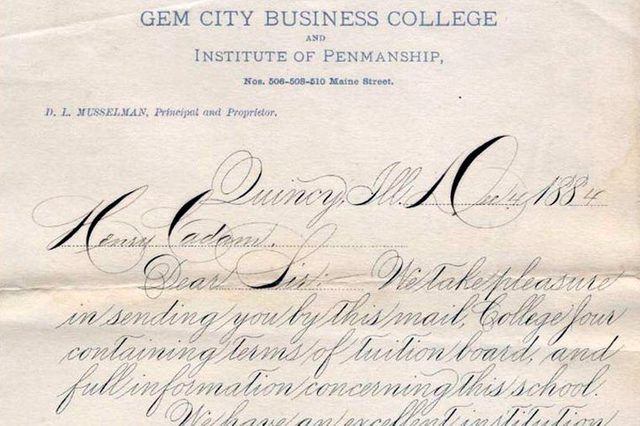 GEM CITY BUSINESS COLLEGE
AND
INSTITUTE OF PENMANSHIP,
Nos. 506-508-510 Maine Street.
D. L. MUSSELMAN, Principal and Proprietor.
Quincy, Ill. Dec 4, 1884
Henry Cadam.
Dear Sir: We take pleasure
in sending you by this mail, College Jour
containing terms of tuition board, and
full information concerning this school.
We have an excellent institution